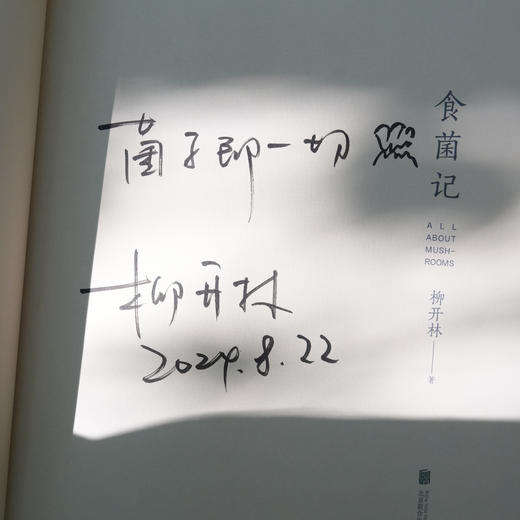 菌子即一切
柳开林
2024.8.22
食菌记
ALL
ABOUT
MUSH-
ROOMS
柳开林——著